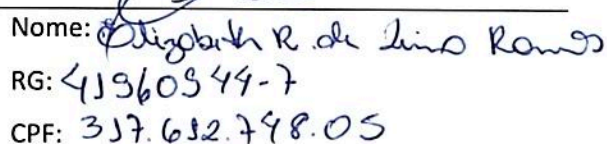 Nome: Elizabeth R. de Lima Ramos
RG: 41960944-7
CPF: 317.612.748.05